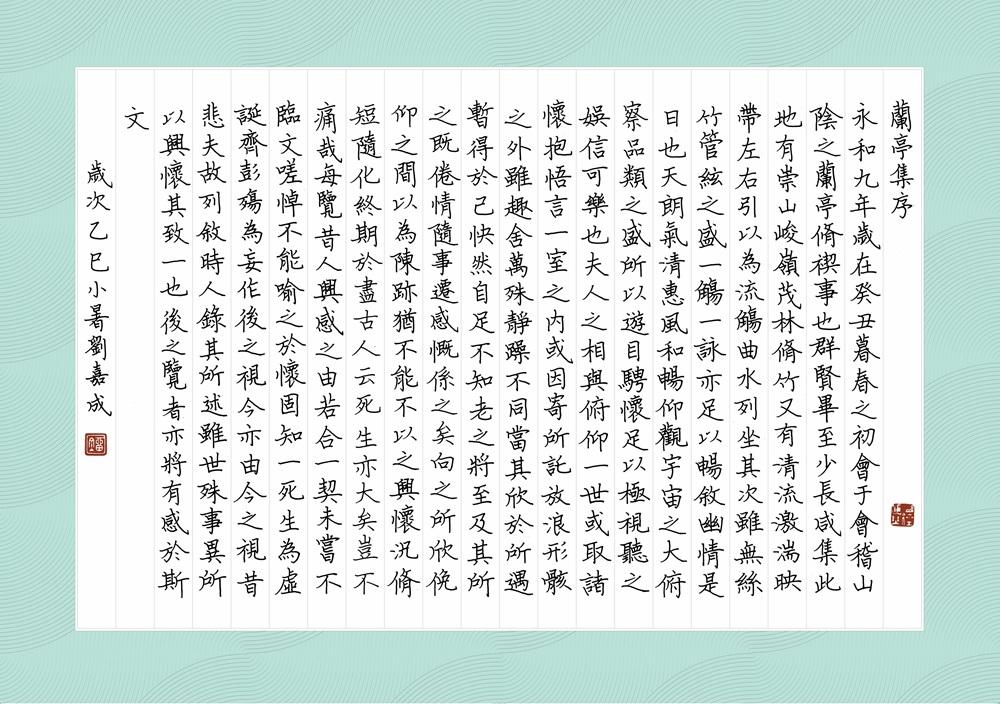 蘭亭集序
永和九年歲在癸丑暮春之初會于會稽山
陰之蘭亭脩禊事也群賢畢至少長咸集此
地有崇山峻嶺茂林脩竹又有清流激湍映
帶左右引以為流觴曲水列坐其次雖無絲
竹管絃之盛一觴一詠亦足以暢敘幽情是
日也天朗氣清惠風和暢仰觀宇宙之大俯
察品類之盛所以遊目騁懷足以極視聽之
娛信可樂也夫人之相與俯仰一世或取諸
懷抱悟言一室之內或因寄所託放浪形骸
之外雖趣舍萬殊靜躁不同當其欣於所遇
暫得於己怏然自足不知老之將至及其所
之既倦情隨事遷感慨係之矣向之所欣俛
仰之間以為陳跡猶不能不以之興懷況脩
短隨化終期於盡古人云死生亦大矣豈不
痛哉每覽昔人興感之由若合一契未嘗不
臨文嗟悼不能喻之於懷固知一死生為虛
誕齊彭殤為妄作後之視今亦由今之視昔
悲夫故列敘時人錄其所述雖世殊事異所
以興懷其致一也後之覽者亦將有感於斯
文
歲次乙巳小暑劉嘉成